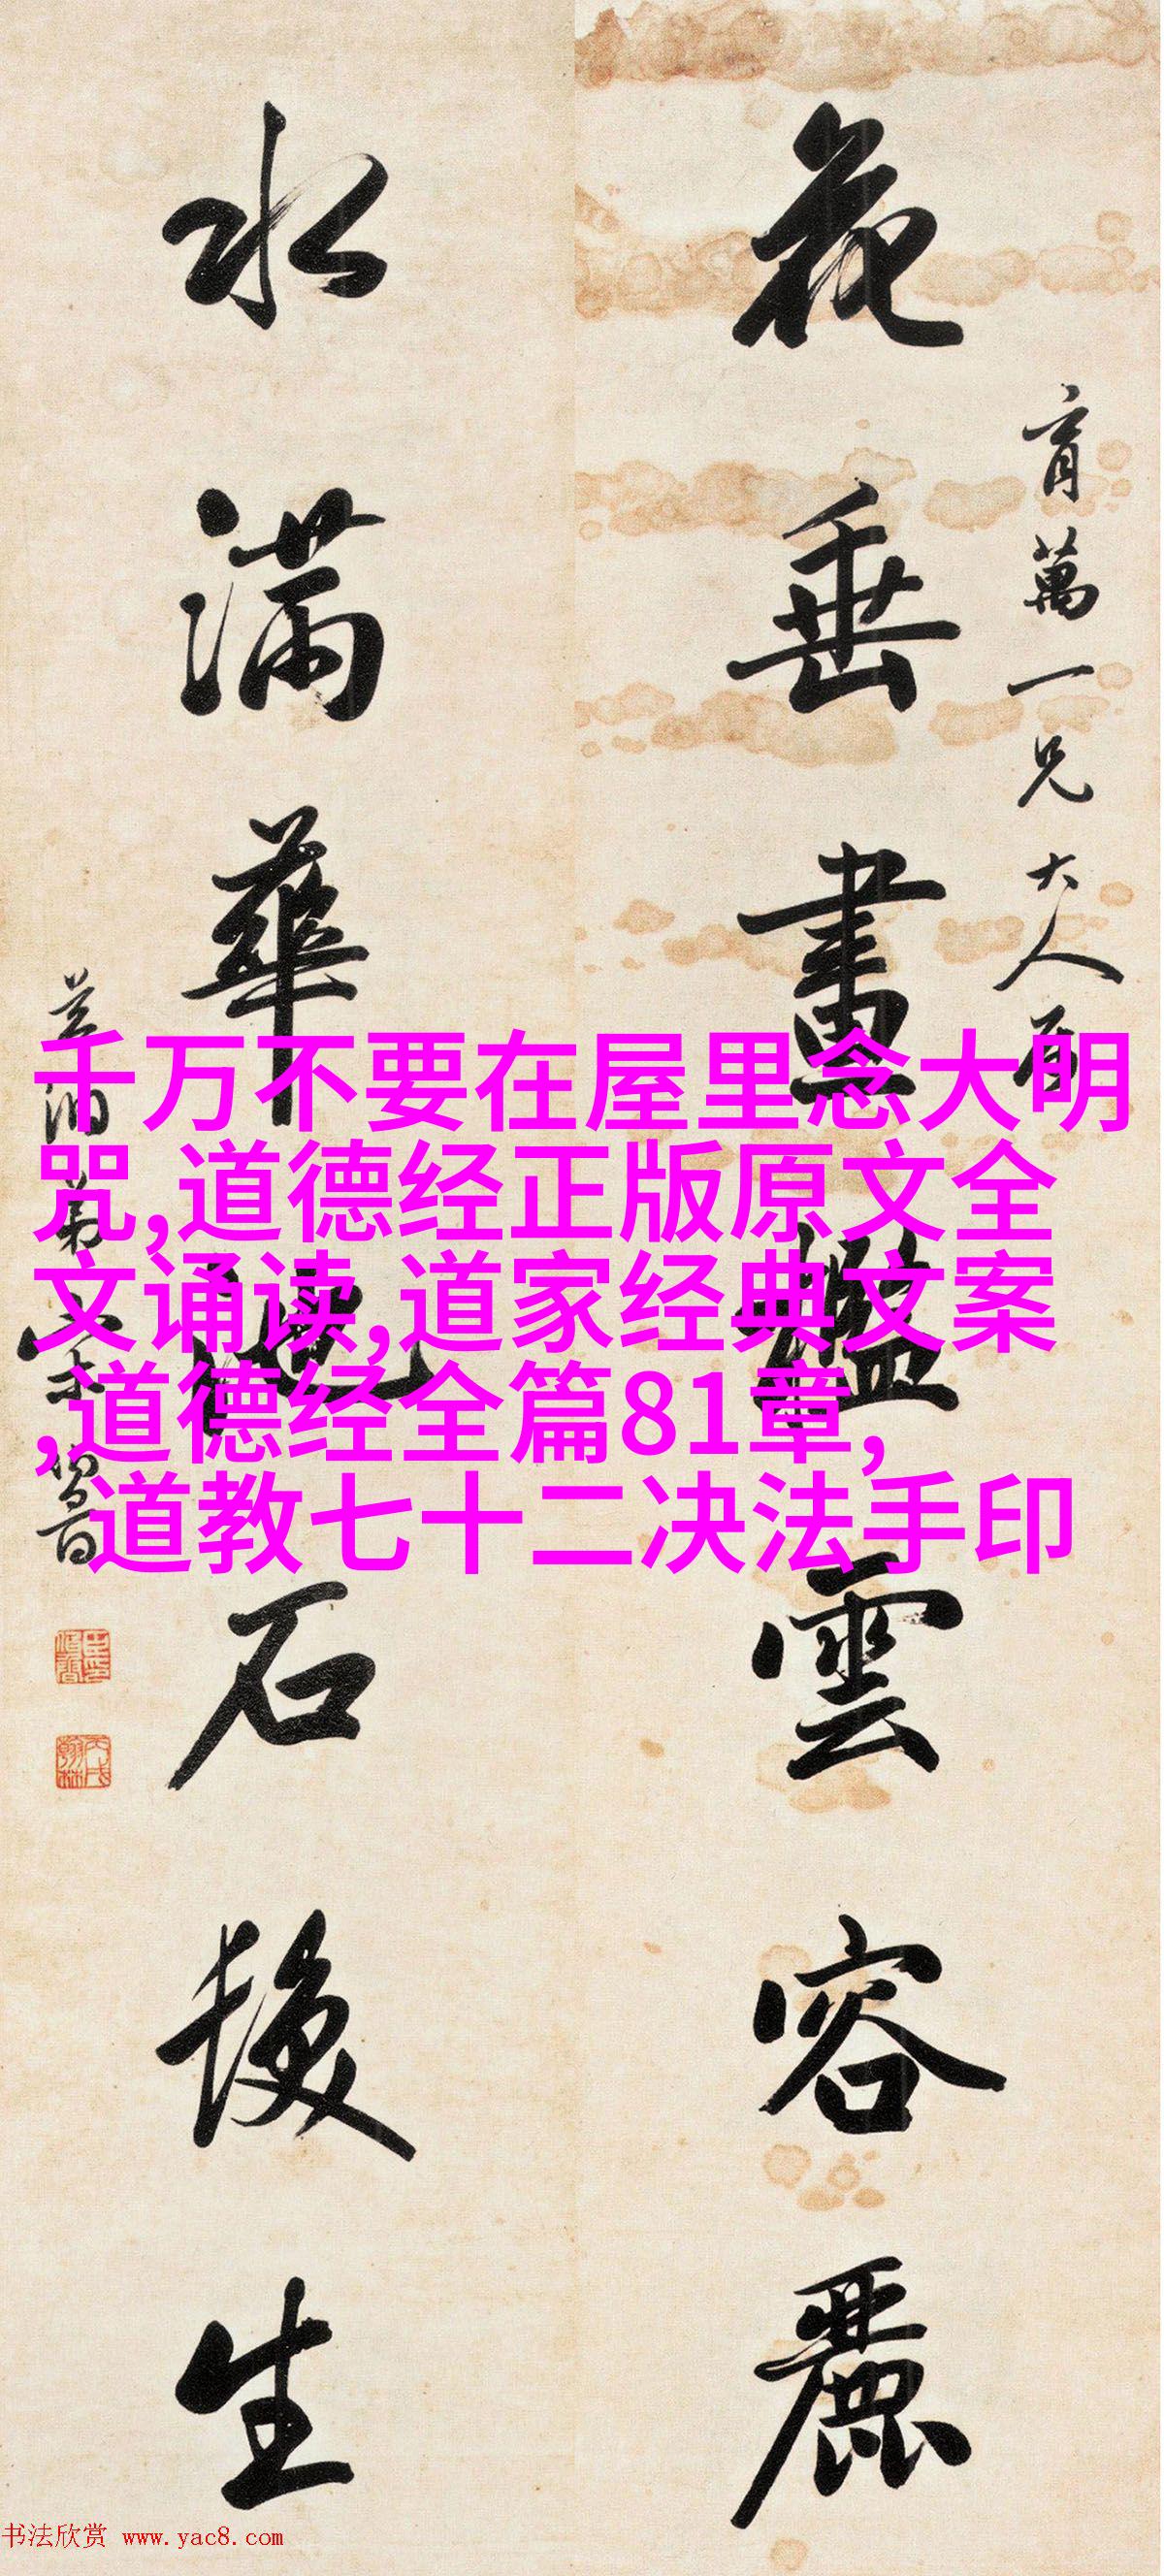 花垂畫檻雲容麗
育萬一兄大人属
水满華池石
生
千万不要在屋里念大明
咒,道德经正版原文全
文诵读,道家经典文案
,道德经全篇81章,
道教七十二决法手印
书法欣赏 www.yac8.com